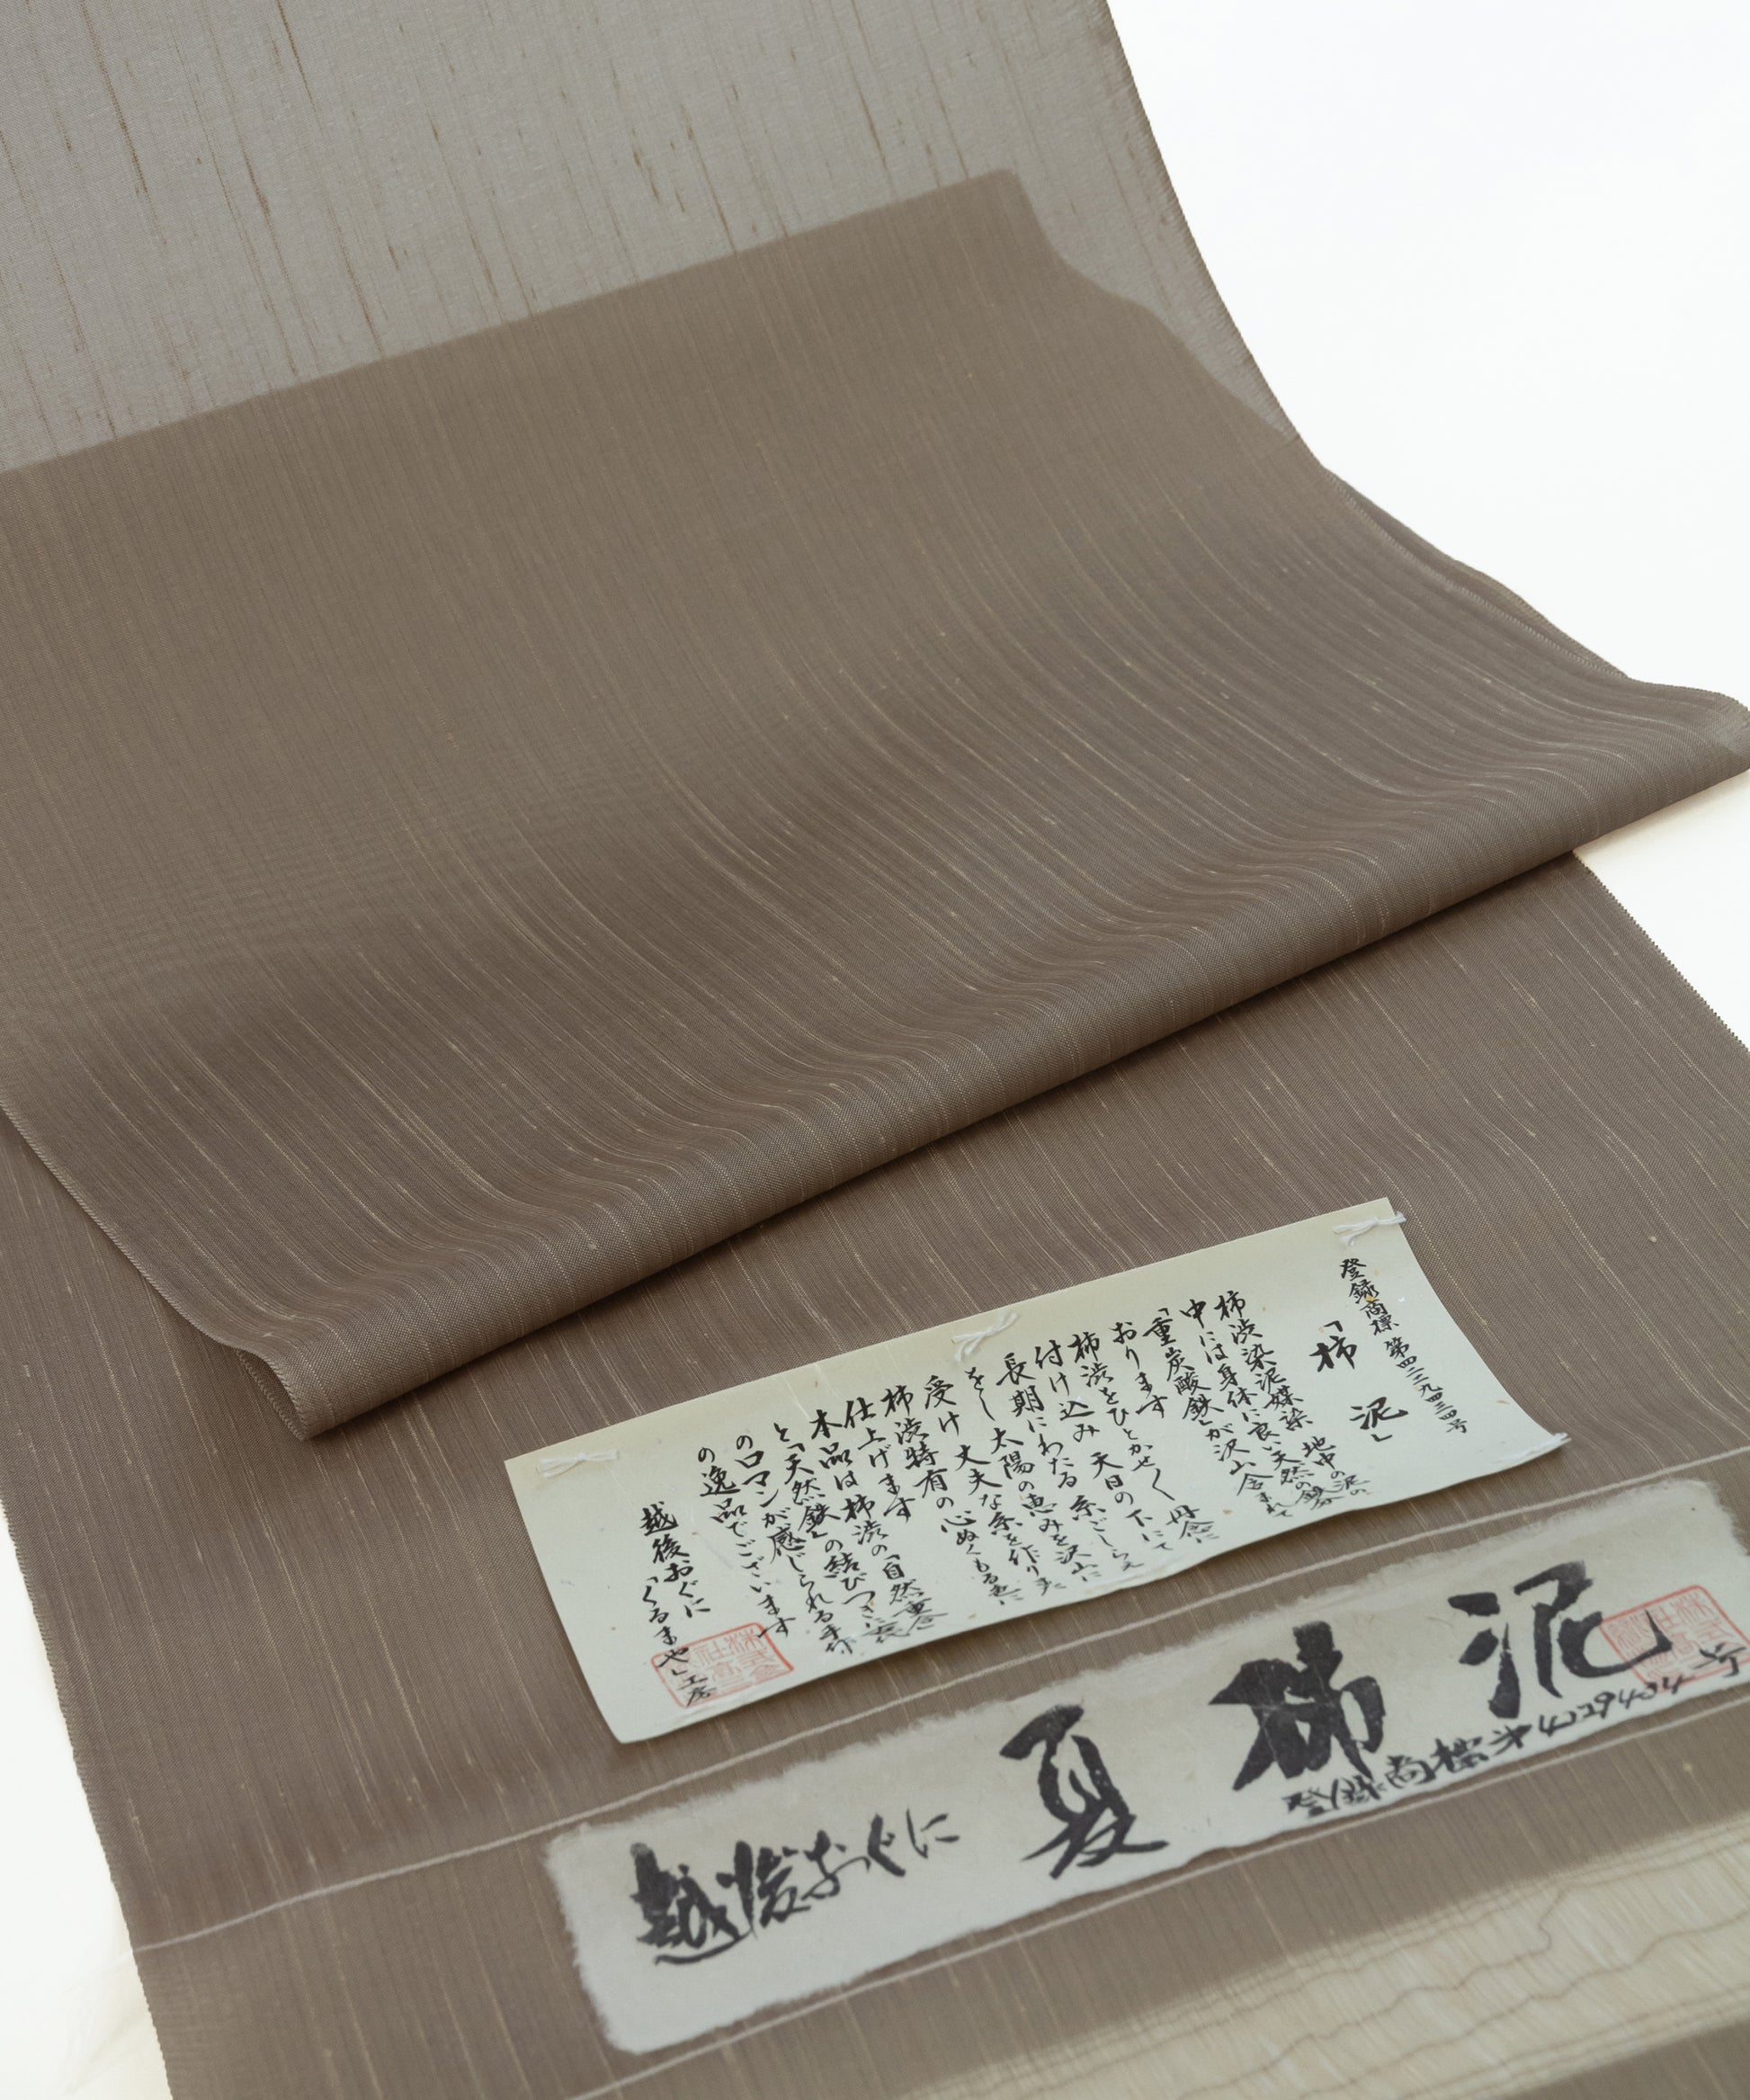 登録商標 第四二二九四三四号
「柿泥」
柿渋染泥媒染 地中の泥の
中には身体に良い天然の鉄分
「重炭酸鉄」が沢山含まれて
おります
柿渋をひとかせ〱丹念に
付け込み 天日の下にて
長期にわたる 糸ごしらえ
をし 太陽の恵みを沢山に
受け 丈夫な糸を作りま
柿渋特有の心ぬくもる色に
仕上げます
本品は柿渋の「自然
と「天然鉄」の結びつき
のロマンが感じられる手作
の逸品でございます
越後おぐに
「くるまや」工房
越後おぐに 夏 柿 泥
登録商標第4229434号